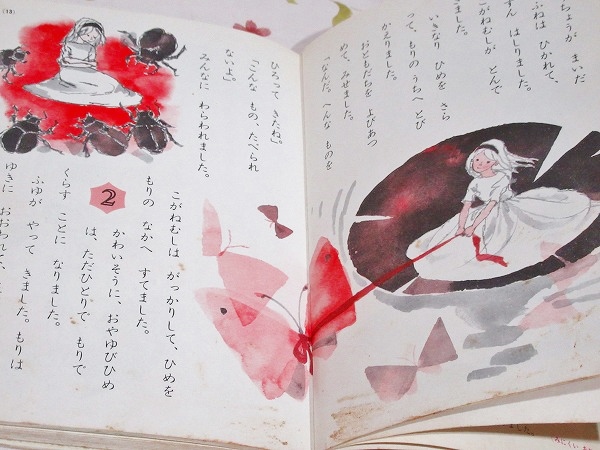 ちょうが まいだ
ふねは ひかれて、
すん はしりました。
こがねむしが とんで
きました。
いきなり ひめを さら
って、もりの うちへ とび
かえりました。
おともだちを よびあつ
めて、みせました。
「なんだ。へんな ものを
(18)
ひろって きたね」。
「こんな もの、たべられ
ないよ」。
みんなに わらわれました。
こがねむしは がっかりして、ひめを
もりの なかへ すてました。
2
かわいそうに、おやゆびひめ
は、ただひとりで もりで
くらす ことに なりました。
ふゆが やって きました。もりは
ゆきに おおわれて、